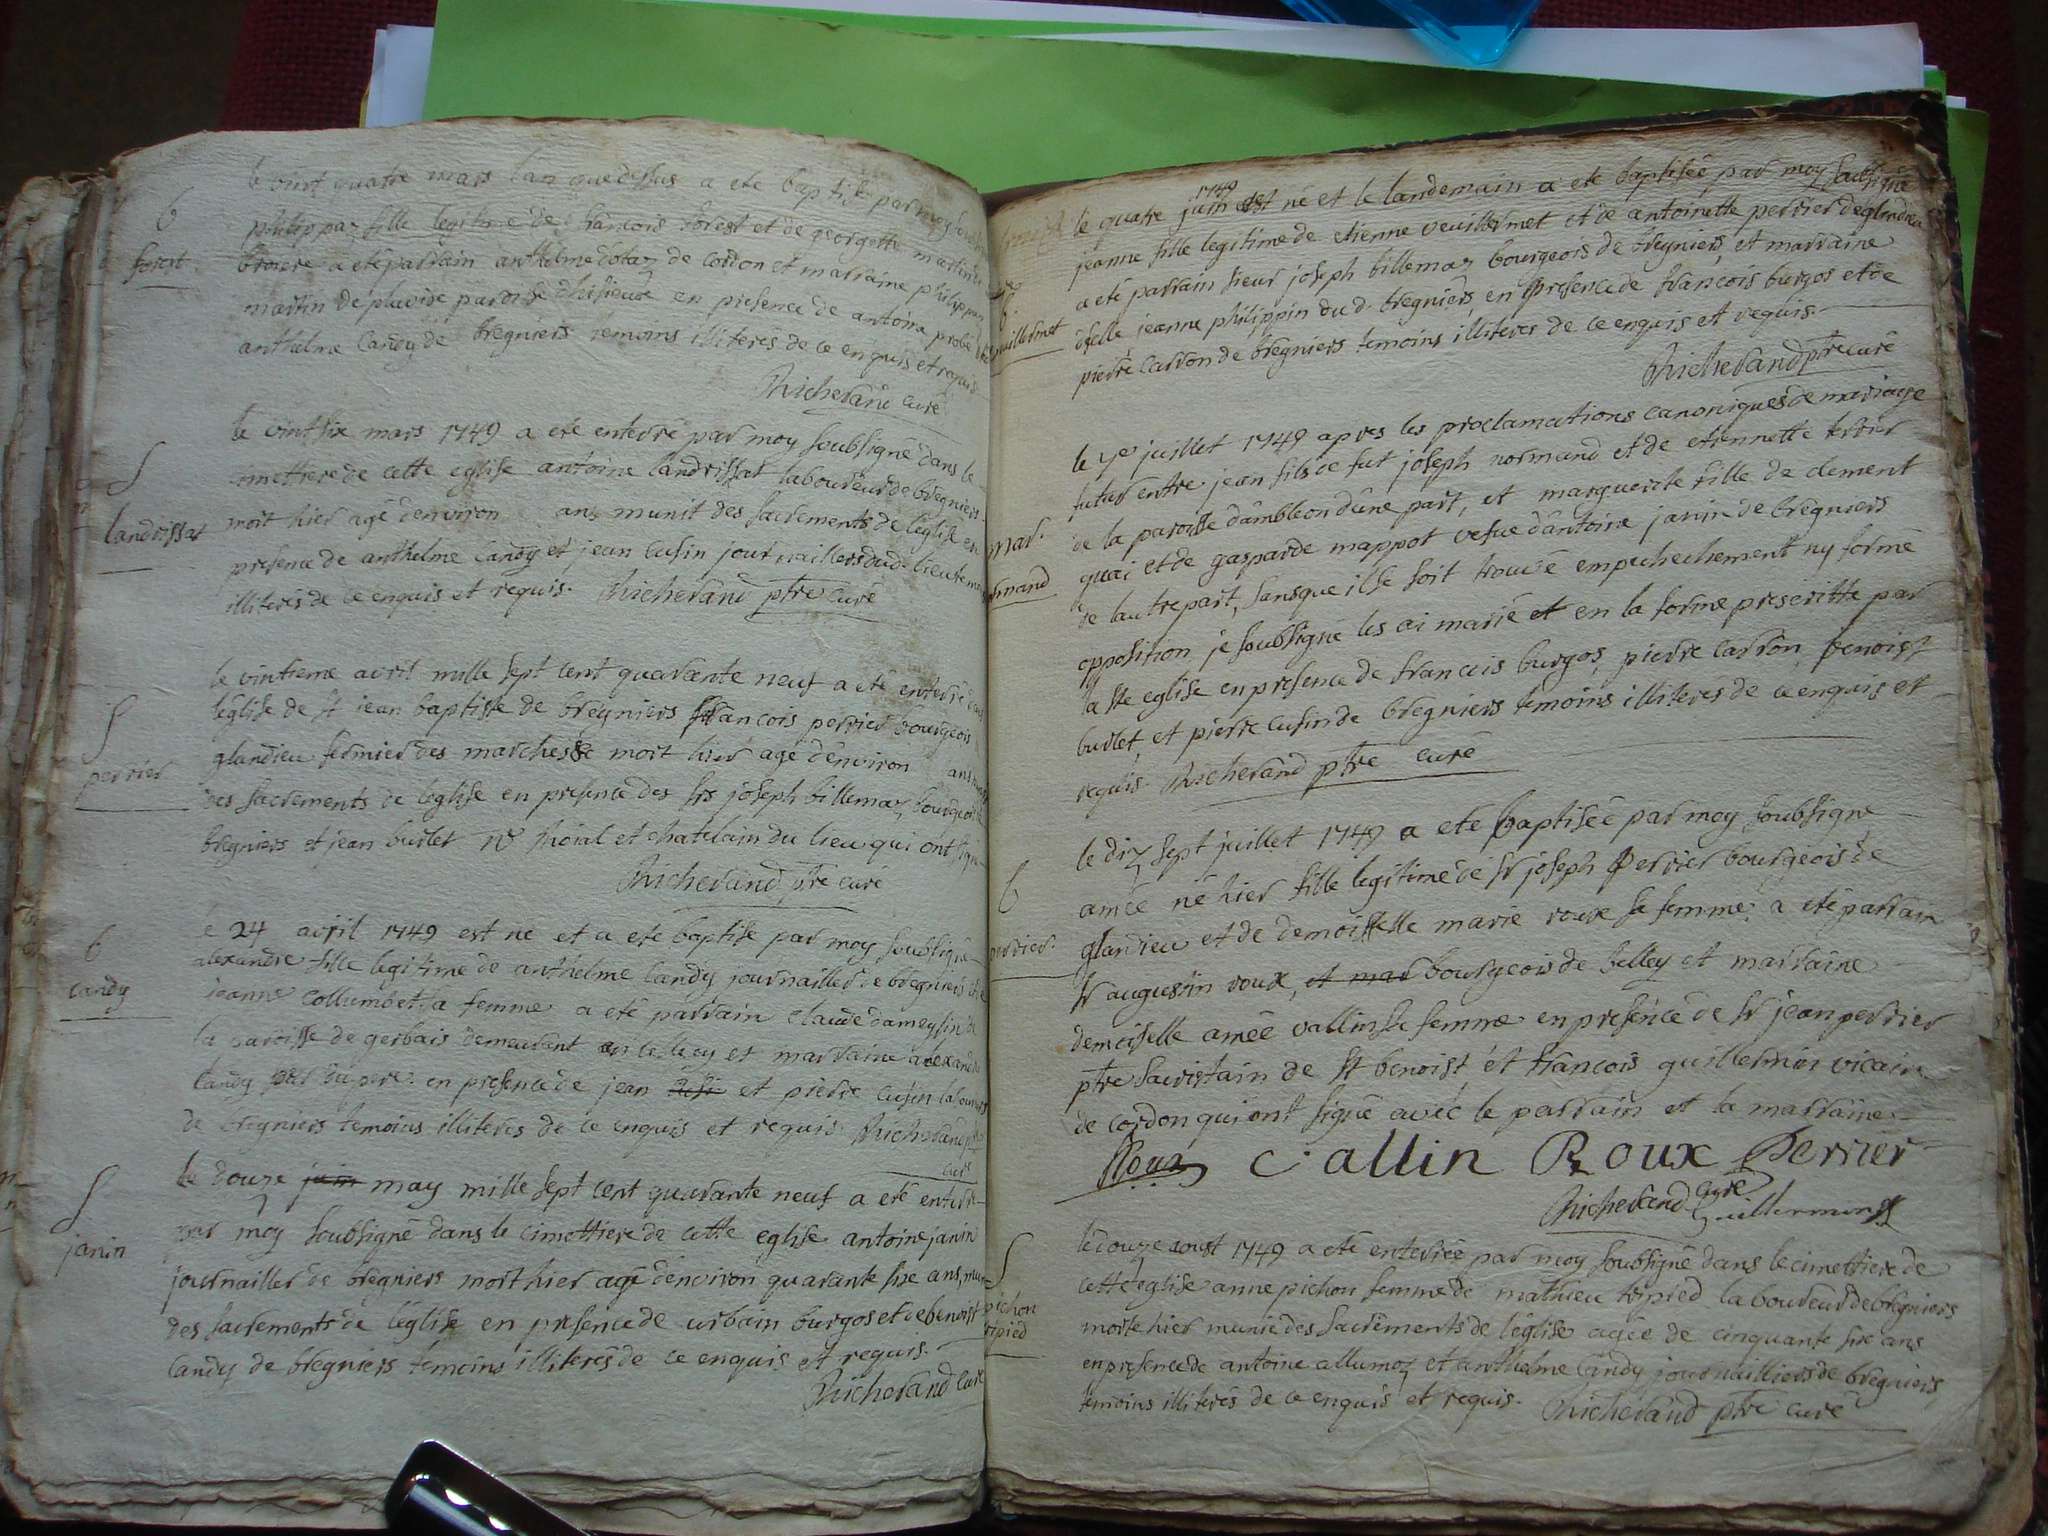 le vint quatre mars lan que dessus a ete baptisé par moy
b
philippaz fille legitime de francois forest et de georgette martin
forest
a eté parrain anthelme dotaz de cordon et marraine philippaz
martin de pluvise paroisse en presence de antoine
anthelme candy de bregniers temoins illiterés de ce enquis et requis
Richerand curé
le vint six mars 1749 a eté enterré par moy soubsigné dans le
S
cimettiere de cette eglise antoine landrissat laboureur de bregniers
landrissat
mort hier agé denviron ans munit des sacrements de leglise en
presence de anthelme candy et jean cusin journailliers dud. lieu temoins
illiterés de ce enquis et requis. Richerand ptre curé
le vintieme avril mille sept cent quarante neuf a eté enterré dans
S
leglise de st jean baptiste de bregniers francois perrier bourgeois
perrier
glandieu fermier des marches mort hier agé denviron ans
des sacrements de leglise en presence des srs joseph billemaz bourgeois de
bregniers et jean burlet roial et chatelain du lieu qui ont signé
Richerand ptre curé
b
24 avril 1749 est né et a eté baptisé par moy soubsigné
candy
alexandre fille legitime de anthelme candy journaillier de bregniers et de
jeanne collumbet sa femme a eté parrain claude dameysin de
la paroisse de gerbais demeurant et marraine alexandre
candy en presence de jean et pierre cusin laboureurs
de bregniers temoins illiterés de ce enquis et requis Richerand ptre
curé
S
le douze juin may mille sept cent quarante neuf a eté enterré
par moy soubsigné dans le cimettiere de cette eglise antoine janin
janin
journaillier de bregniers mort hier agé denviron quarante six ans, muni
des sacrements de leglise en presence de urbain burgos et de benoist
candy de bregniers temoins illiterés de ce enquis et requis.
Richerand curé
1749
le quatre juin est né et le landemain a eté baptisée par moy soubsigné
jeanne fille legitime de etienne veuillermet et de antoinette perrier de glandieu
b
a eté parrain sieur joseph billemaz bourgeois de bregniers, et marraine
veuillermet
dselle jeanne philippin dud. bregniers, en presence de francois burgos et de
pierre carron de bregniers temoins illiterés de ce enquis et requis.
Richerand ptre curé
le 7e juillet 1749 apres les proclamations canoniques de mariage
futur entre jean fils de fut joseph normand et de etiennette
mar.
de la paroisse dambleon dune part, et marguerite fille de clement
normand
quai et de gasparde mappot vefve dantoine janin de bregniers
de lautre part, sans que il se soit trouvé empechechement ny formé
opposition, je soubsigné les ai marié et en la forme prescritte par
la ste eglise en presence de francois burgos, pierre carron, benoist
burlet, et pierre cusin de bregniers temoins illiterés de ce enquis et
requis. Richerand ptre curé
le diz sept juillet 1749 a eté baptisée par moy soubsigné
b
amée né hier fille legitime de sr joseph perrier bourgeois de
perrier.
glandieu et de demoiselle marie roux sa femme, a eté parrain
sr augustin roux, et mar bourgeois de belley et marraine
demoiselle amée vallin sa femme en presence de sr jean perrier
ptre sacristain de st benoist et francois guillermin vicaire
de cordon qui ont signé avec le parrain et la marraine
Roux C. allin Roux Perrier
Richerand curé Guillermin
S
le douze aoust 1749 a eté enterrée par moy soubsigné dans le cimettiere de
pichon
cette eglise anne pichon femme de mathieu tripied laboureur de bregniers
tripied
morte hier munie des sacrements de leglise agée de cinquante six ans
en presence de antoine allumaz et anthelme candy journailliers de bregniers
temoins illiterés de ce enquis et requis. Richerand ptre curé